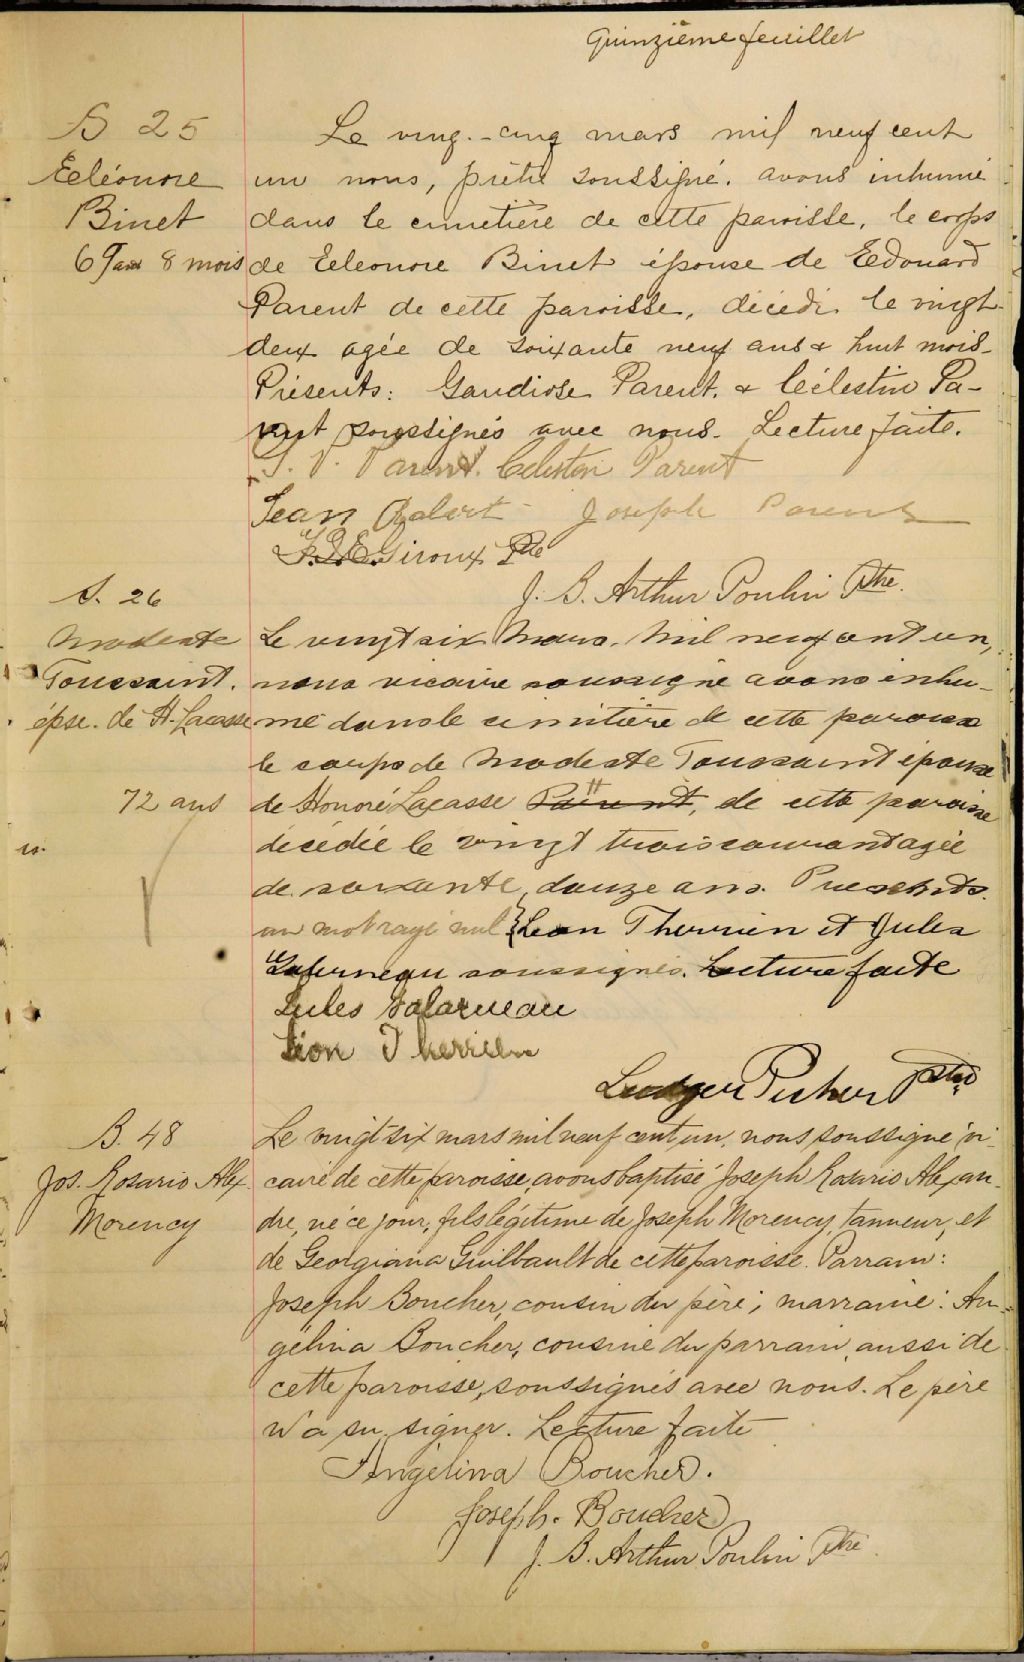 Quinzième feuillet
S 25
Eléonore
Binet
69 ans 8 mois
Le ving-cinq mars mil neuf cent
un nous, prêtre soussigné. avons inhumé
dans le cimetière de cette paroisse, le corps
de Eléonore Binet épouse de Edouard
Parent de cette paroisse, décédé le vingt-
deux agée de soixante neuf ans & huit mois-
Présents: Gaudiose Parent. & Célestin Pa-
rent soussignés avec nous. Lecture faite.
Parent. Celestin Parent
Jean Joseph Parent
Giroux Ptre
J. B. Arthur Poulin Ptre.
S. 26
Modeste
Toussaint.
épse. de H. Lacasse
72 ans
Le vingt six Mars. Mil neuf cent un,
nous vicaire soussigné avons inhu-
mé dans le cimitière de cette paroisse
le corps de Modeste Toussaint épouse
de Honoré Lacasse Parent, de cette paroisse
décédée le vingt trois courant agée
de soixante, douze ans. Presents.
un mot rayé nul Leon Therrien et Jules
Galerneau soussignés. Lecture faite
Jules Galarneau
Léon Therrien
Ludger Picher ptre
B. 48
Jos. Rosario Alex.
Morency
Le vingt six mars mil neuf cent un, nous soussigné vi-
caire de cette paroisse, avons baptisé Joseph Rosario Alexan-
dre, né ce jour, fils légitime de Joseph Morency, tanneur, et
de Georgiana Guilbault de cette paroisse. Parrain:
Joseph Boucher, cousin du père; marraine: An-
gélina Boucher, cousine du parrain, aussi de
cette paroisse, soussignés avec nous. Le père
n'a su signer. Lecture faite
Angélina Boucher.
Joseph. Boucher
J. B. Arthur Poulin Ptre